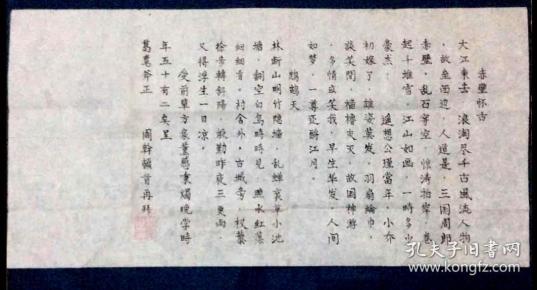 赤壁怀古
大江東去　浪淘尽千古風流人物
故壘西邊　人道是　三国周郎
赤壁　乱石穿空　惊涛拍岸　卷
起千堆雪　江山如画　一時多少
豪杰　遥想公瑾當年　小乔
初嫁了　雄姿英发　羽扇綸巾
談笑間　檣櫓灰灭　故国神游
多情应笑我　早生华发　人间
如梦　一尊还酹江月
鷓鴣天
林断山明竹隐墙　乱蝉衰草小池
塘　翻空白鸟時時見　照水红蕖
細細香　村舍外　古城旁　杖藜
徐步轉斜陽　殷勤昨夜三更雨
又得浮生一日凉
年五十有二矣呈
斧正　周幹　頓首再拜
孔夫子旧书网
www.kongfz.com